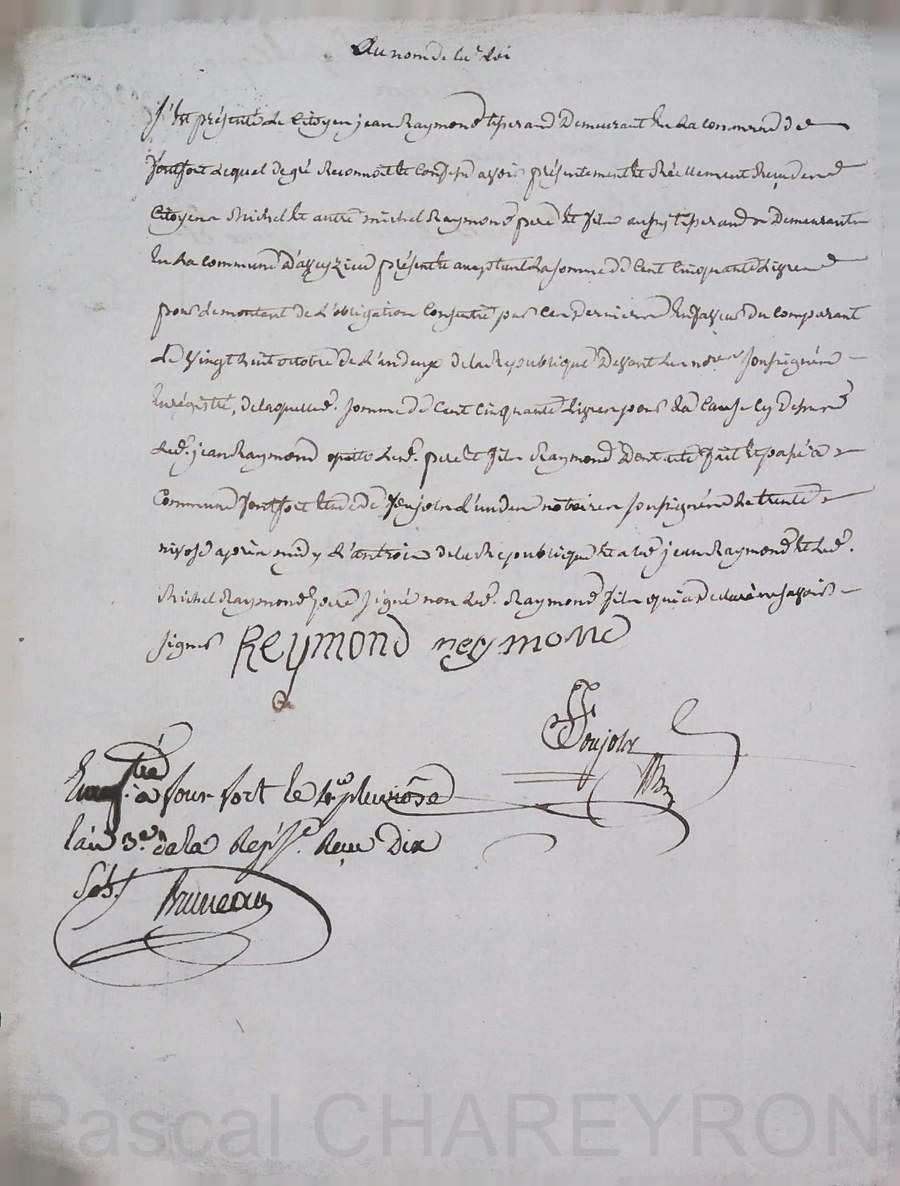 Au nom de la Loi
S'est présenté le Citoyen jean Raymond tisserand Demeurant En La commune de
fontfort Lequel de gré Reconnoit et Confesse avoir présentement et Réellement Reçu des
Citoyens Michel et autre michel Raymond pere et fils aussy tisserands Demeurants
En La commune présents acceptants La somme de Cent Cinquante Livres
pour le montant de L'obligation Consentie par Ces Derniers En faveur du comparant
Le vingt huit octobre de L'an deux de la Republique Devant Les nores soussignés
Enregistré, de laquelle somme de Cent Cinquante Livres pour La Cause Cy Dessus
Led. jean Raymond quitte Lesd. pere et fils Raymond Dont acte fait et passé a
Commune fontfort Etude de foujols L'un des notaires soussignés Le trente
nivose après midy L'an trois de la Republique Et a Led. jean Raymond et Led.
Michel Raymond pere signé non Led. Raymond fils qui a Declaré ne savoir
signer REymond reymond
foujols
Enregtré a four fort le 1er pluviôse
l'an 3e. de la Repse. Reçu Dix
Sols Bruneau
Pascal CHAREYRON